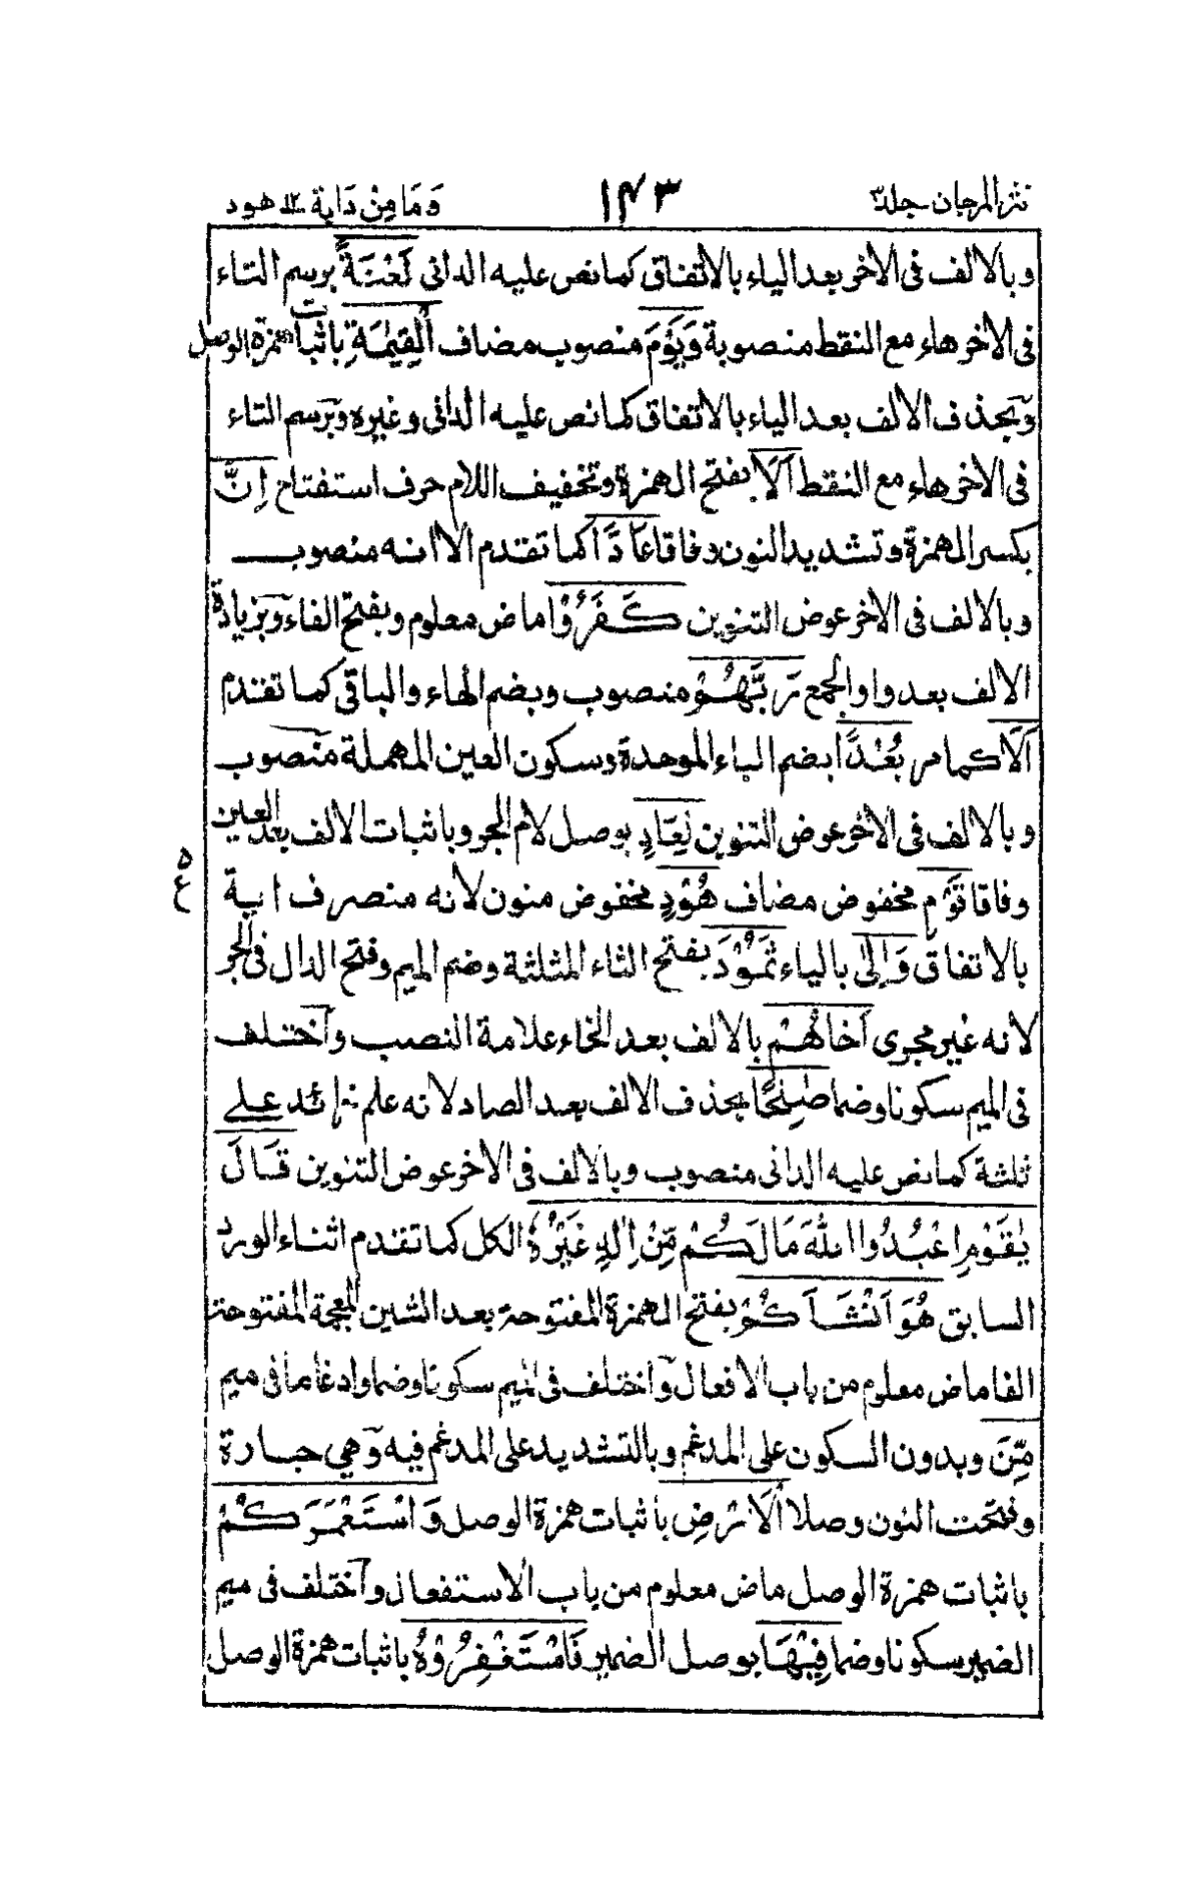 نثر المرجان جلد٣ ١٤٣ وَمَا مِنْ دَابة ١٢ هود
وبالالف فى الاخر بعد الياء بالاتفاق كما نص عليه الدانى لَعْنَةً برسم التاء
فى الاخر هاء مع النقط منصوبة وَيَوْمَ منصوب مضاف الْقِيٰمَةِ باثبات همزة الوصل
وبحذف الالف بعد الياء بالاتفاق كما نص عليه الدانى وغيره وبرسم التاء
فى الاخر هاء مع النقط اَلَا بفتح الهمزة وتخفيف اللام حرف استفتاح اِنَّ
بكسر الهمزة وتشديد النون وفاقا عَادًا كما تقدم الا انه منصوب
وبالالف فى الاخر عوض التنوين كَفَرُوْا ماض معلوم وبفتح الفاء وبزيادة
الالف بعد واو الجمع رَبَّهُمْ منصوب وبضم الهاء والباقى كما تقدم
اَلَا كما مر بُعْدًا بضم الباء الموحدة وسكون العين المهملة منصوب
وبالالف فى الاخر عوض التنوين لِعَادٍ بوصل لام الجر وباثبات الالف بعد العين
وفاقا قَوْمِ مخفوض مضاف هُوْدٍ مخفوض منون لانه منصرف اية
ع ٥
بالاتفاق وَاِلٰى بالياء ثَمُوْدَ بفتح الثاء المثلثة وضم الميم وفتح الدال فى الجر
لانه غير مجرى اَخَاهُمْ بالالف بعد الخاء علامة النصب واختلف
فى الميم سكونا وضما صٰلِحًا بحذف الالف بعد الصاد لانه علم زائد على
ثلثة كما نص عليه الدانى منصوب وبالالف فى الاخر عوض التنوين قَالَ
يٰقَوْمِ اعْبُدُوا اللّٰهَ مَا لَكُمْ مِّنْ اِلٰهٍ غَيْرُهٗ الكل كما تقدم اثناء الورد
السابق هُوَ اَنْشَاَكُمْ بفتح الهمزة المفتوحة بعد الشين المعجمة المفتوحة
الفا ماض معلوم من باب الافعال واختلف فى الميم سكونا وضما وادغاما فى ميم
مِّنَ وبدون السكون على المدغم وبالتشديد على المدغم فيه وهى جارة
وفتحت النون وصلا الْاَرْضِ باثبات همزة الوصل وَاسْتَعْمَرَكُمْ
باثبات همزة الوصل ماض معلوم من باب الاستفعال واختلف فى ميم
الضمير سكونا وضما فِيْهَا بوصل الضمير فَاسْتَغْفِرُوْهُ باثبات همزة الوصل